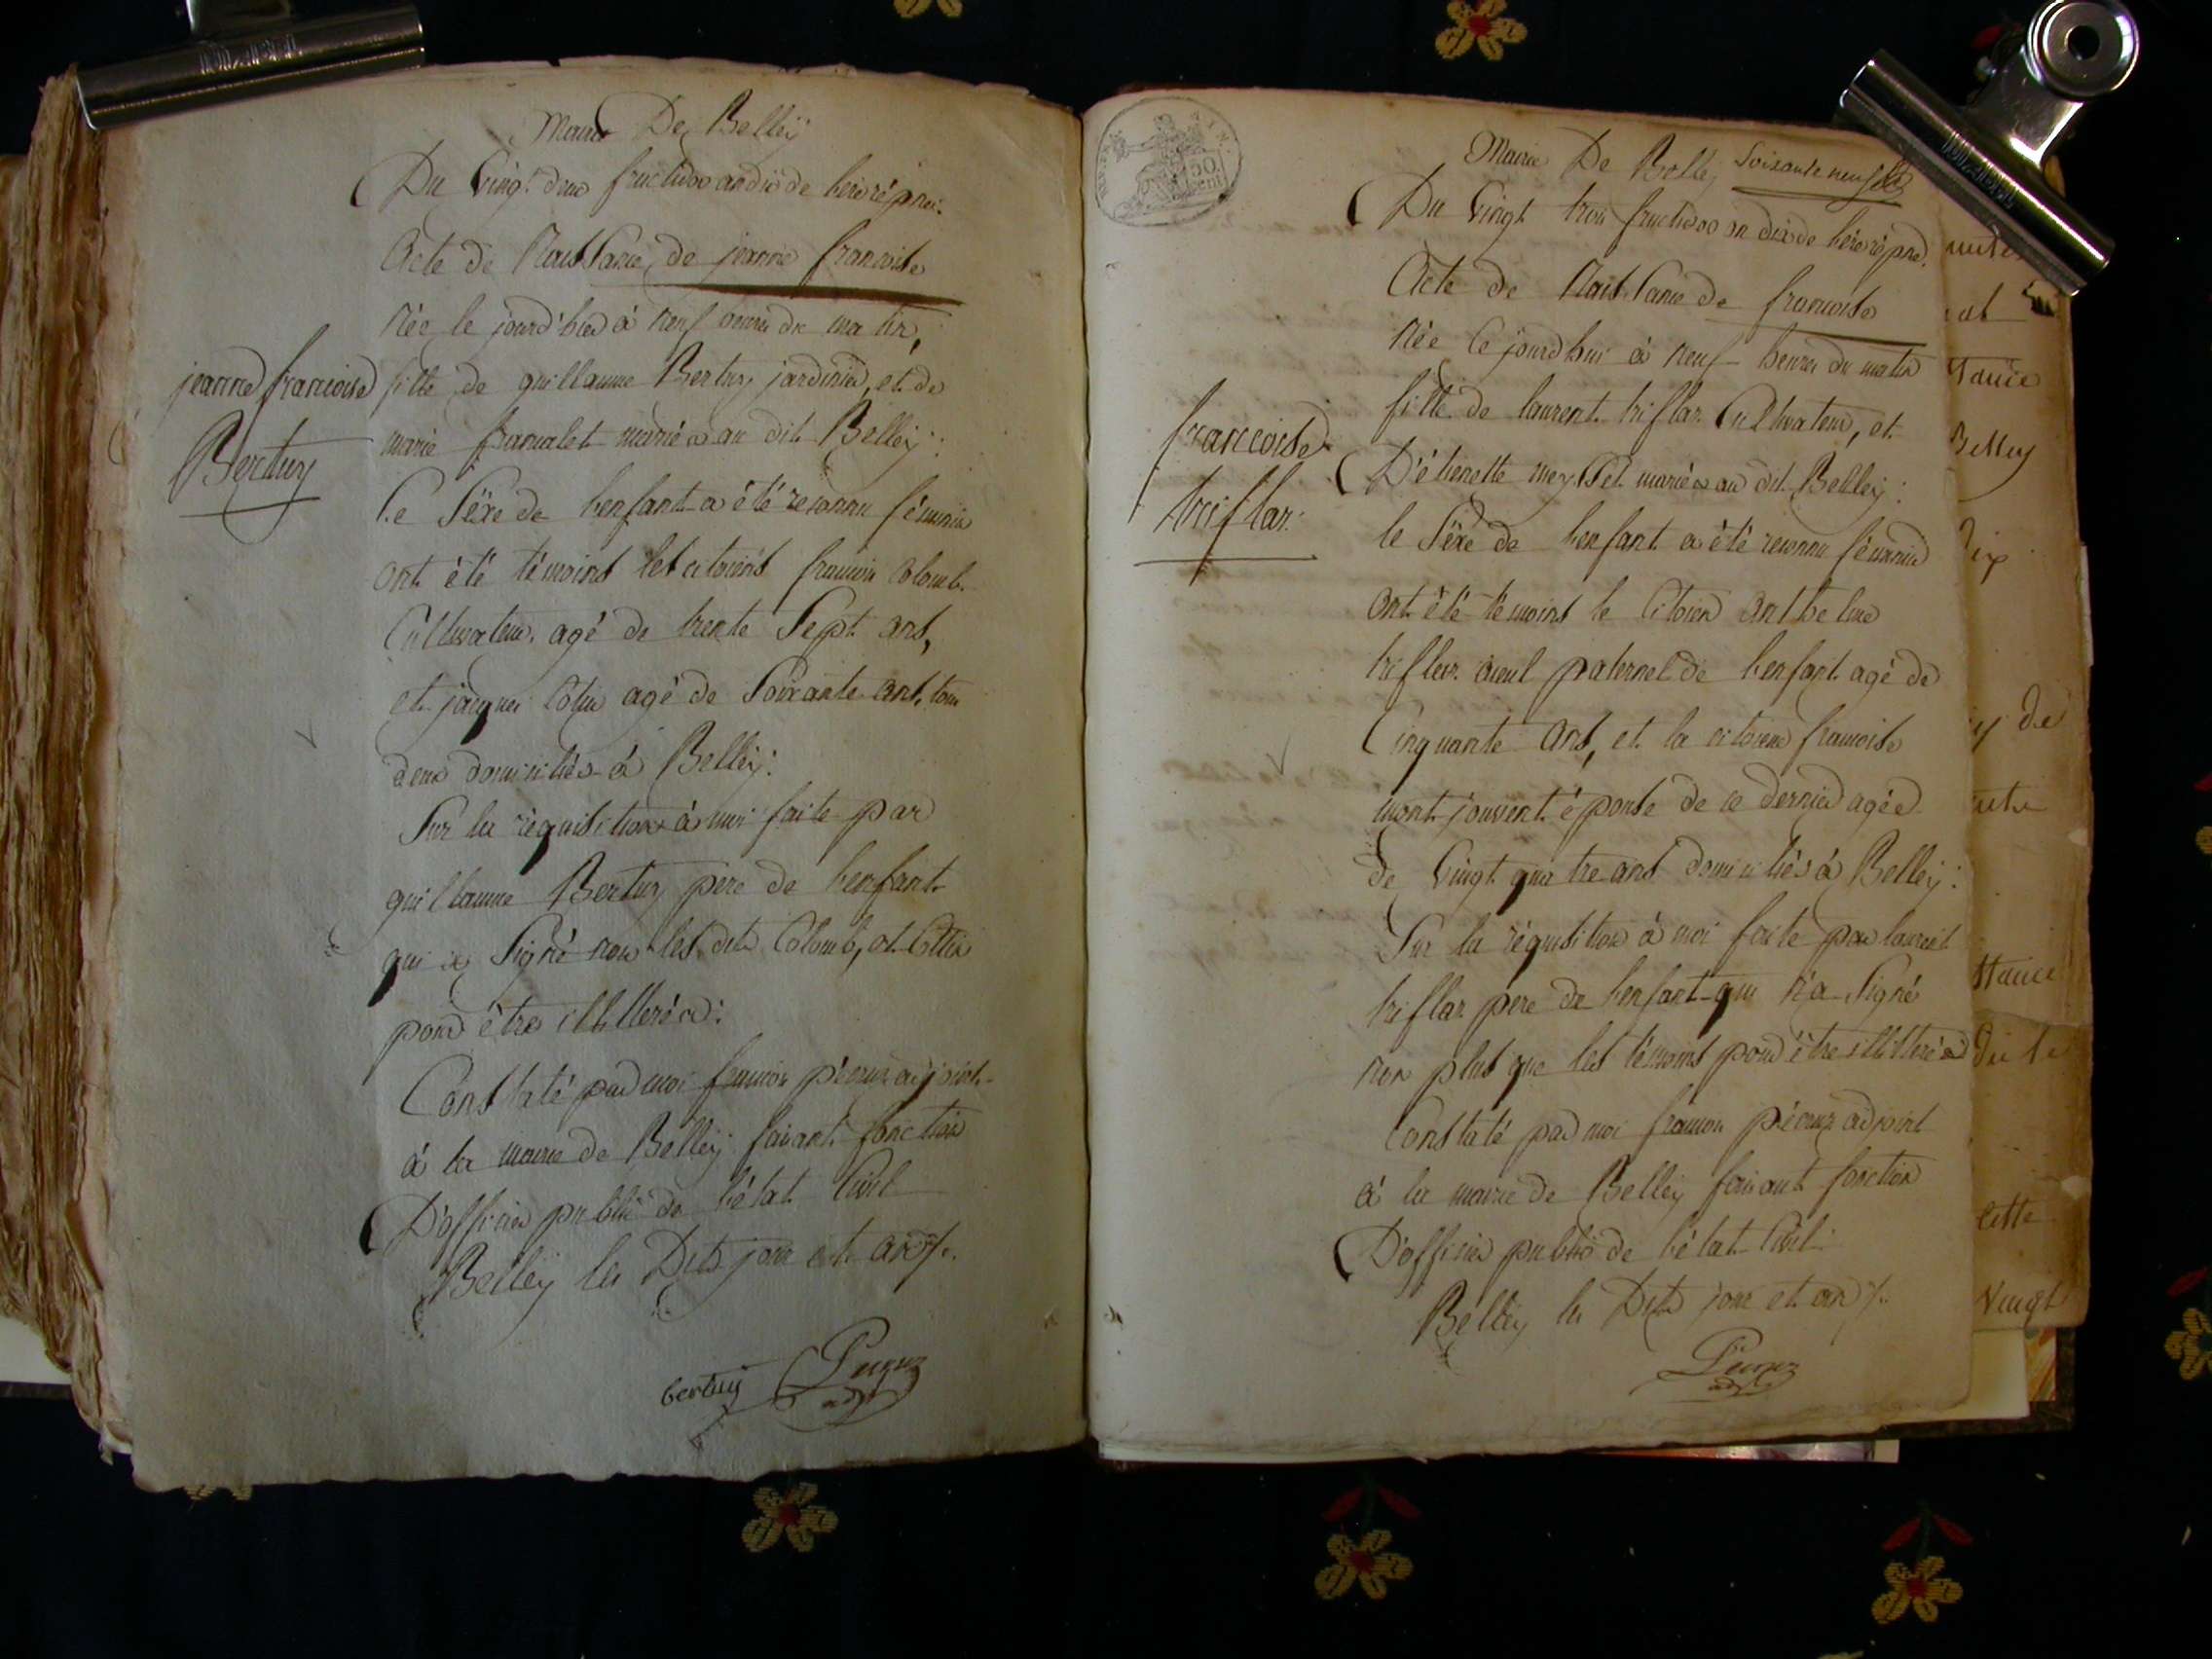 Mairie De Belleÿ
Du Vingt deux fructidor an dix de l'ere répne.
Acte de Naissance de jeanne francoise
née le jourd'hui à neuf heures du matin,
fille de guillaume Bertuy jardinier, et de
marie francalet mariés au dit Belleÿ:
Le Sexe de l'enfant a été reconnu féminin
ont été témoins les citoiens francois Colomb
Cultivateur agé de trente Sept ans,
et jacques Cottin agé de Soixante ans, tous
deux domiciliés à Belleÿ:
Sur la réquisition à moi faite par
guillaume Bertuy pere de l'enfant
qui a Signé non les dits Colomb, et Cottin
pour être illitterés:
Constaté par moi francois pécruz adjoint
à la mairie de Belleÿ faisant fonction
D'officier public de l'état Civil
Belleÿ les Dits jour et an
jeanne francoise
Bertuy
bertuy
Mairie De Belleÿ
Soixante neuf
Du Vingt trois fructidor an dix de l'ère répne.
Acte de Naissance de francoise
née Cejourd'hui à neuf heures du matin
fille de laurent triflar Cultivateur, et
D'ébenette mariés au dit Belleÿ:
le Sexe de l'enfant a été reconnu féminin
ont été témoins le Citoien anthelme
triflar aieul paternel de l'enfant agé de
Cinquante ans, et la citoiene francoise
montjouvent épouse de ce dernier agée
de Vingt quatre ans domiciliés à Belleÿ:
Sur la réquisition à moi faite par laurent
triflar pere de l'enfant qui n'a Signé
non plus que les témoins pour être illitterés
Constaté par moi francois pécruz adjoint
à la mairie de Belleÿ faisant fonction
D'officier public de l'état Civil
Belleÿ les Dits jour et an
francoise
triflar
50
Belley
dix
de
Vingt